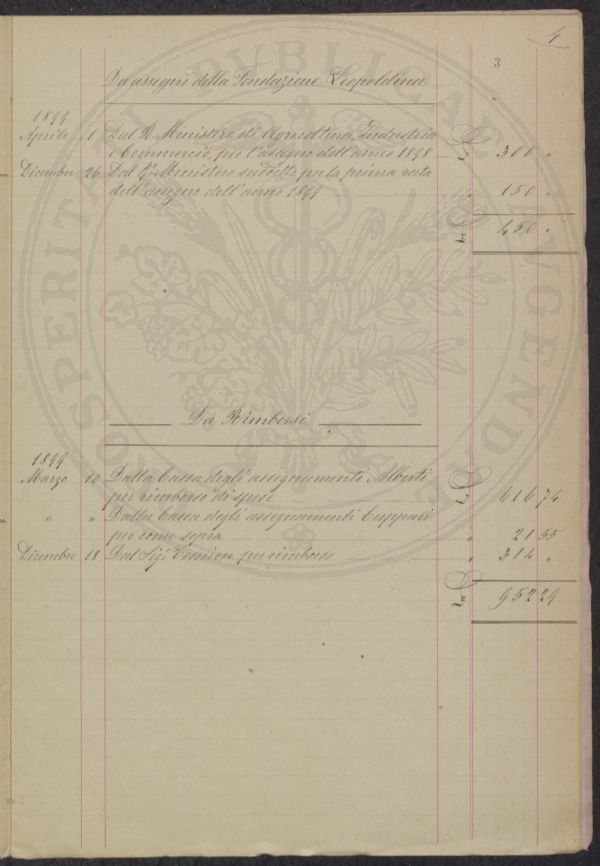 4
3
Da assegni della Fondazione Leopoldina
1899
Aprile 1 Dal R. Ministero di Agricoltura, Industria
e Commercio, per l'assegno dell'anno 1898 £ 300 "
Dicembre 26 Dal R. Ministero suddetto per la prima rata
dell'assegno dell'anno 1899 " 150 "
£ 450 "
Da Rimborsi
1899
Marzo 10 Dalla Cassa degli assegnamenti Alberti
per rimborso di spese £ 616 74
" " Dalla Cassa degli assegnamenti Cuppari
per come sopra " 21 55
Dicembre 18 Dal Sig. per rimborso " 314 "
£ 952 29
PROSPERITATI PUBLICAE AUGENDAE